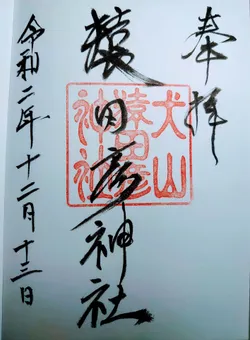 奉拝
猿田彦神社
犬山
猿田彦
神社
令和二年十二月十三日